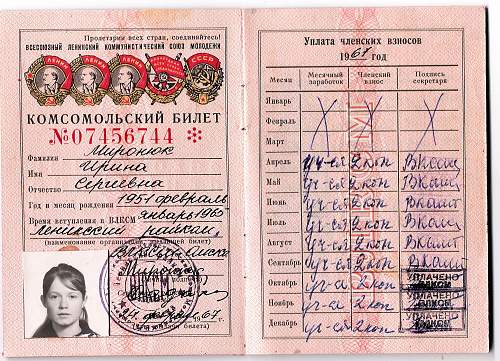 Пролетарии всех стран, соединяйтесь!
ВСЕСОЮЗНЫЙ ЛЕНИНСКИЙ КОММУНИСТИЧЕСКИЙ СОЮЗ МОЛОДЕЖИ
ЛЕНИН ЛЕНИН ЛЕНИН СССР
КОМСОМОЛЬСКИЙ БИЛЕТ
№07456744
Фамилия Миронюк
Имя Ирина
Отчество Сергиевна
Год и месяц рождения 1951 февраль
Время вступления в ВЛКСМ январь 1965
Ленинский райком
(наименование организации, выдавшей билет)
67 г.
Уплата членских взносов
1967 год
Месяц Месячный заработок Членский взнос Подпись секретаря
Январь
Февраль
Март
Апрель уч-ся 2 коп
Май уч-ся 2 коп
Июнь уч-ся 2 коп
Июль уч-ся 2 коп
Август уч-ся 2 коп
Сентябрь уч-ся 2 коп
Октябрь уч-ся 2 коп УПЛАЧЕНО ВЛКСМ
Ноябрь уч-ся 2 коп УПЛАЧЕНО ВЛКСМ
Декабрь уч-ся 2 коп УПЛАЧЕНО ВЛКСМ